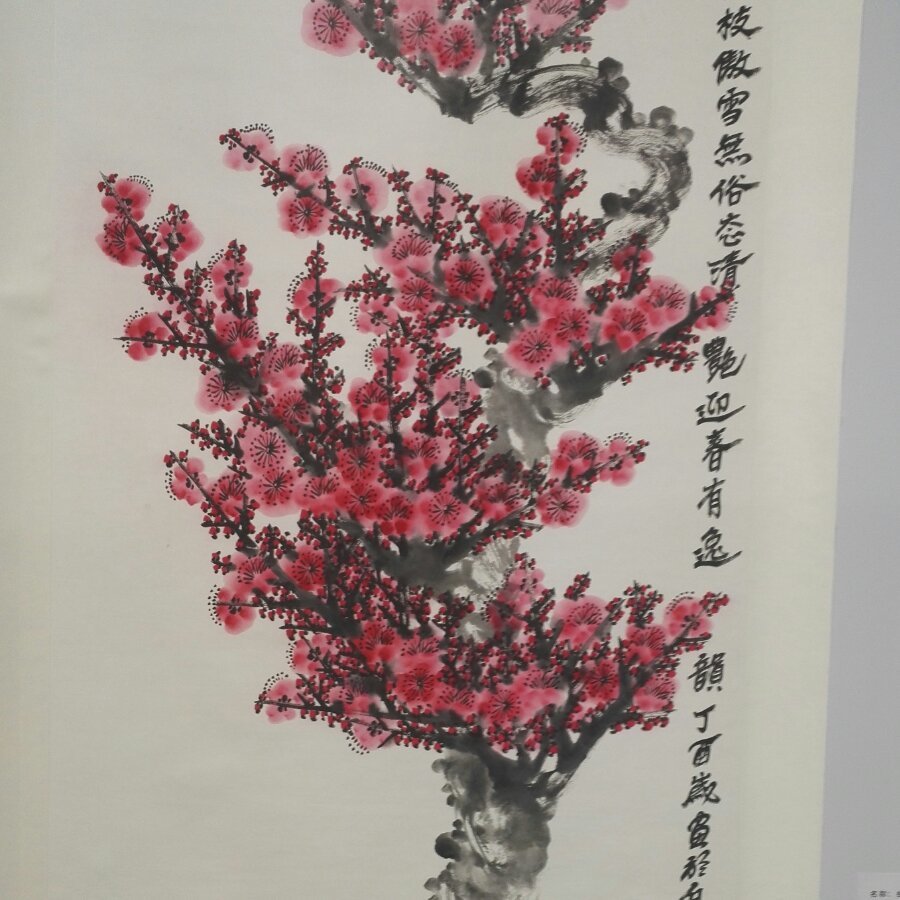 枝傲雪無俗态清艷迎春有逸韻丁酉歲畫於
名称：